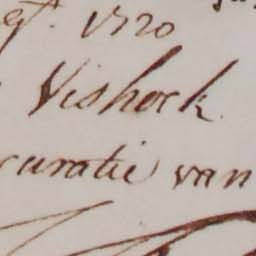 1720
Vishoek
curatie van